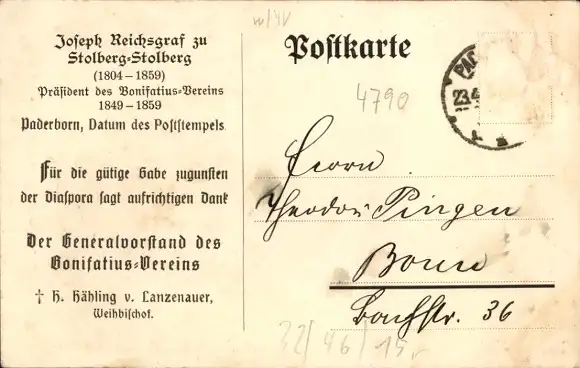 Joseph Reichsgraf zu
Stolberg-Stolberg
(1804–1859)
Präsident des Bonifatius-Vereins
1849–1859
Paderborn, Datum des Poststempels
Für die gütige Gabe zugunsten
der Diaspora sagt aufrichtigen Dank
Der Generalvorstand des
Bonifatius-Vereins
† H. Hähling v. Lanzenauer,
Weihbischof.
Postkarte
4790
PAD
23.4
Herrn
Theodor Pingen
Bonn
Bachstr. 36
32/46/15